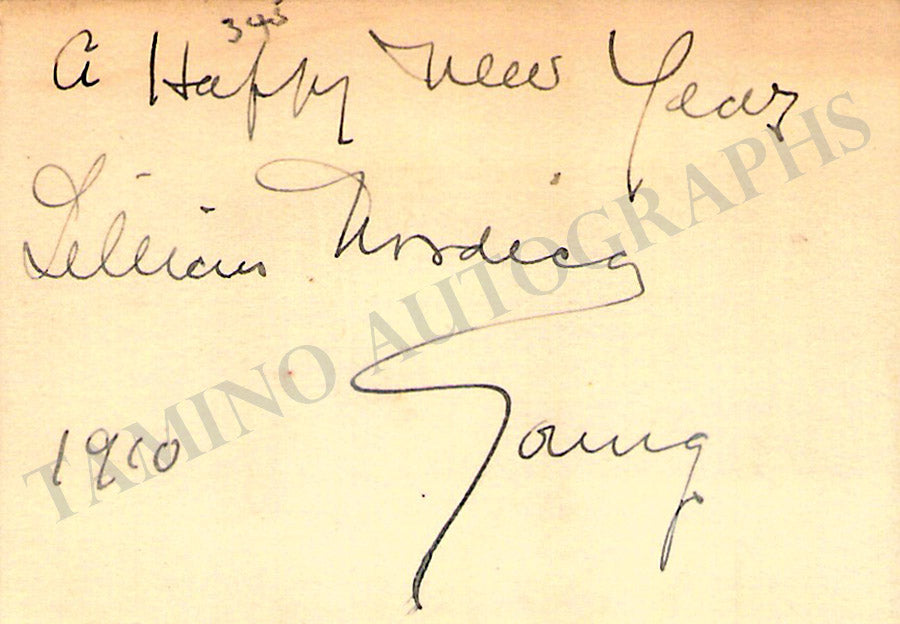 345
A Happy New Year
Lillian Nordica
Young
1910
TAMINO AUTOGRAPHS